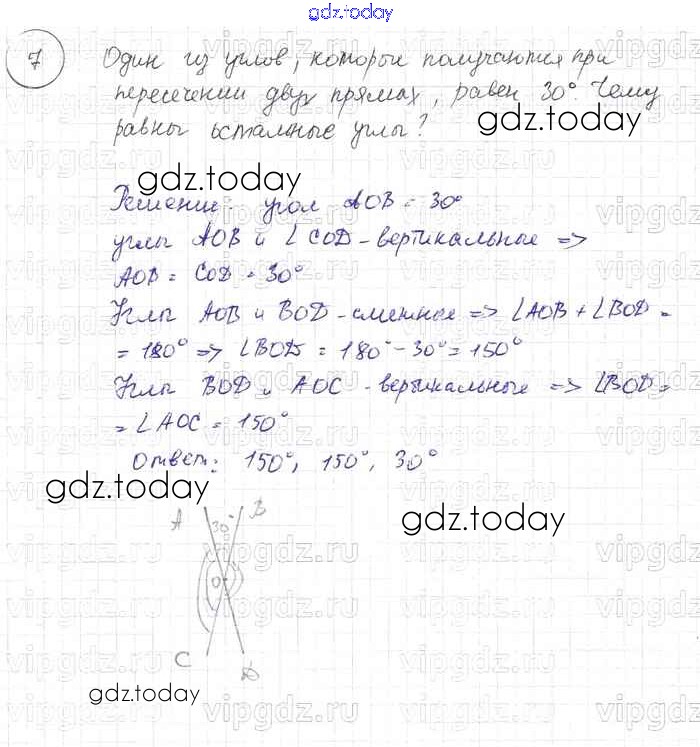 gdz.today
7 Один из углов, которые получаются при
пересечении двух прямых, равен 30°. Чему
равны остальные углы?
gdz.today
gdz.today
Решение: угол AOB = 30°
углы AOB и ∠COD - вертикальные =>
AOB = COD = 30°
Углы AOB и BOD - смежные => ∠AOB + ∠BOD =
= 180° => ∠BOD = 180° - 30° = 150°
Углы BOD и AOC - вертикальные => ∠BOD =
= ∠AOC = 150°
Ответ: 150°, 150°, 30°
gdz.today
gdz.today
A 30° B
O
C D
gdz.today
vipgdz.ru